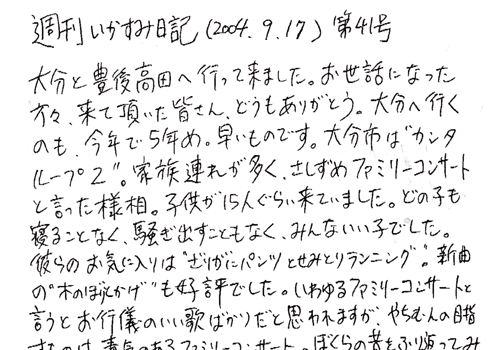 週刊いかすみ日記（2004.9.17）第41号
大分と豊後高田へ行って来ました。お世話になった
方々、来て頂いた皆さん、どうもありがとう。大分へ行く
のも、今年で5年め。早いものです。大分市は"カンタ
ループ2"。家族連れが多く、さしずめファミリーコンサート
と言った様相。子供が15人ぐらい来ていました。どの子も
寝ることなく、騒ぎ出すこともなく、みんないい子でした。
彼らのお気に入りは"ざりがにパンツとせみとりランニング"。新曲
の"木のぼりかげ"も好評でした。いわゆるファミリーコンサートと
言うとお行儀のいい歌ばかりだと思われますが、やちむんの目指
すものは、毒気のあるファミリーコンサート。ぼくらの昔をふり返ってみ